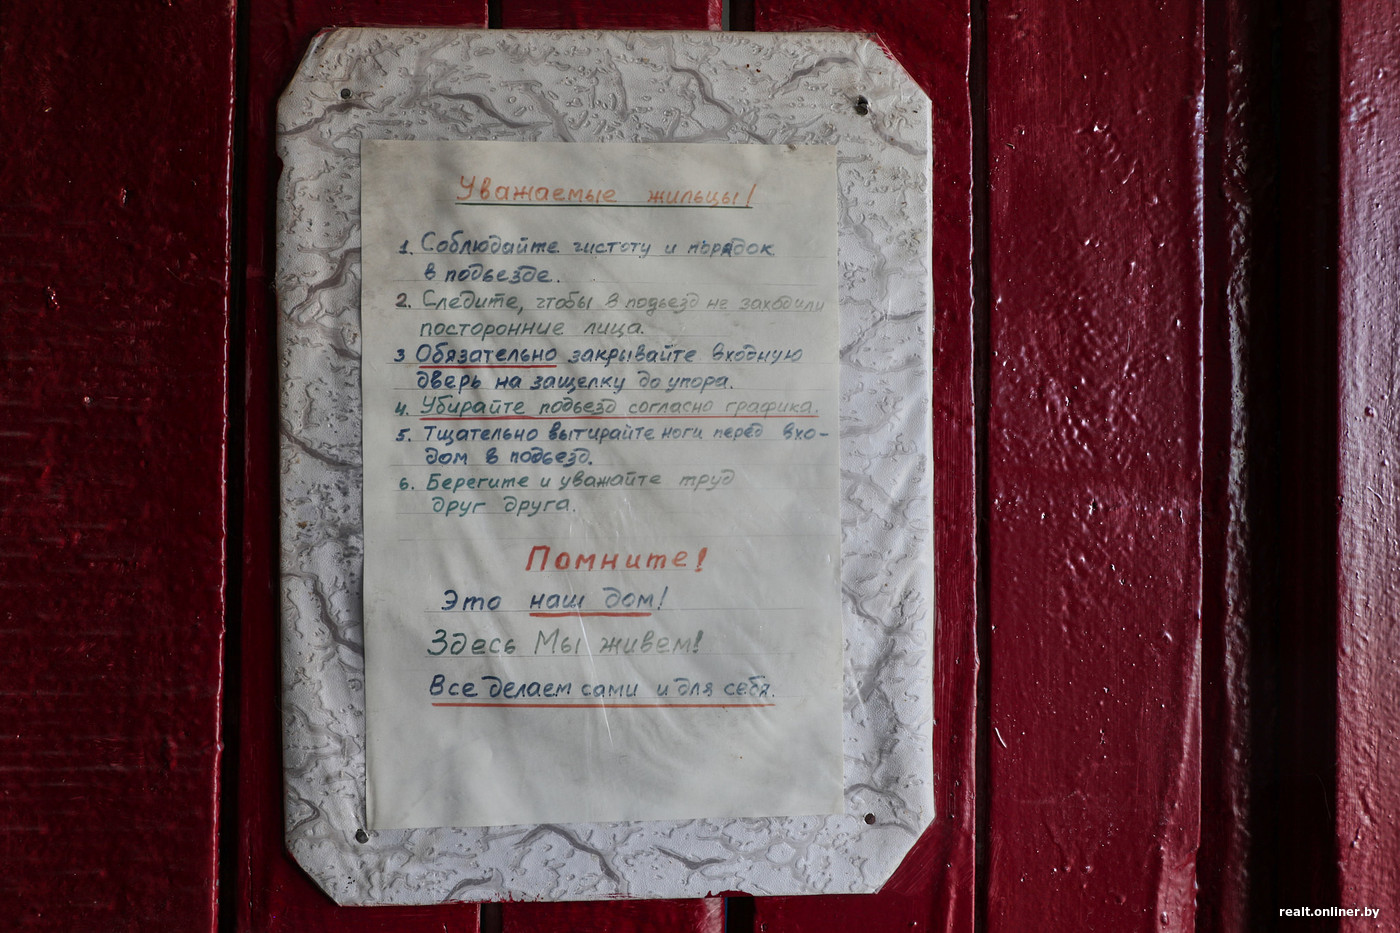 Уважаемые жильцы!
1. Соблюдайте чистоту и порядок
в подьезде.
2. Следите, чтобы в подьезд не заходили
посторонние лица.
3 Обязательно закрывайте входную
дверь на защелку до упора.
4. Убирайте подьезд согласно графика.
5. Тщательно вытирайте ноги перед вхо-
дом в подьезд.
6. Берегите и уважайте труд
друг друга.
Помните!
Это наш дом!
Здесь Мы живем!
Все делаем сами и для себя.
realt.onliner.by